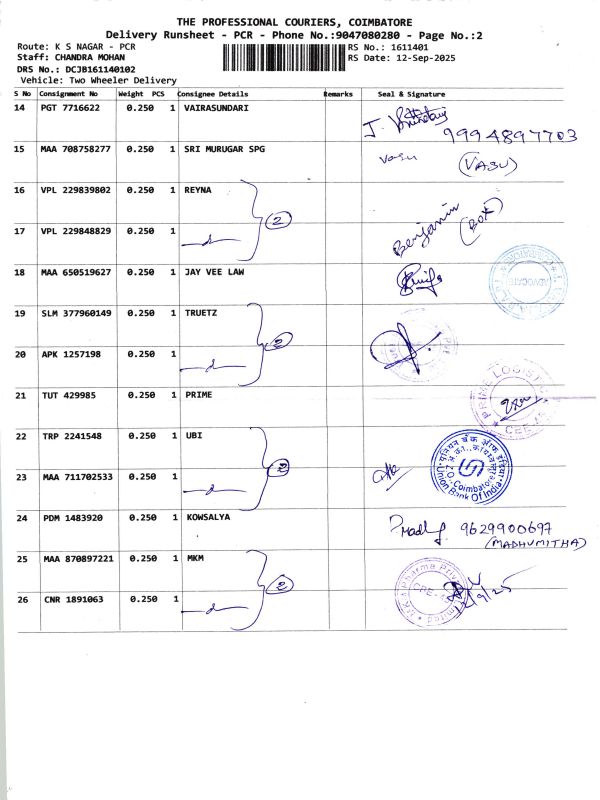 THE PROFESSIONAL COURIERS, COIMBATORE
Delivery Runsheet - PCR - Phone No.:9047080280 - Page No.:2
Route: K S NAGAR - PCR
RS No.: 1611401
Staff: CHANDRA MOHAN
RS Date: 12-Sep-2025
DRS No.: DCJB161140102
Vehicle: Two Wheeler Delivery
S No Consignment No Weight PCS Consignee Details Remarks Seal & Signature
14 PGT 7716622 0.250 1 VAIRASUNDARI
9994897703
15 MAA 708758277 0.250 1 SRI MURUGAR SPG
Vasu (VASU)
16 VPL 229839802 0.250 1 REYNA
2
Benjamin (BOX)
17 VPL 229848829 0.250 1
18 MAA 650519627 0.250 1 JAY VEE LAW
ADVOCATE
19 SLM 377960149 0.250 1 TRUETZ
2
20 APK 1257198 0.250 1
21 TUT 429985 0.250 1 PRIME
PRIME LOGIST
22 TRP 2241548 0.250 1 UBI
यूनियन बैंक ऑफ इंडिया
Coimbatore
Union Bank Of India
23 MAA 711702533 0.250 1
24 PDM 1483920 0.250 1 KOWSALYA
9629900697
(MADHUMITHA)
25 MAA 870897221 0.250 1 MKM
2
Pharma Private Limited
12/9/25
26 CNR 1891063 0.250 1